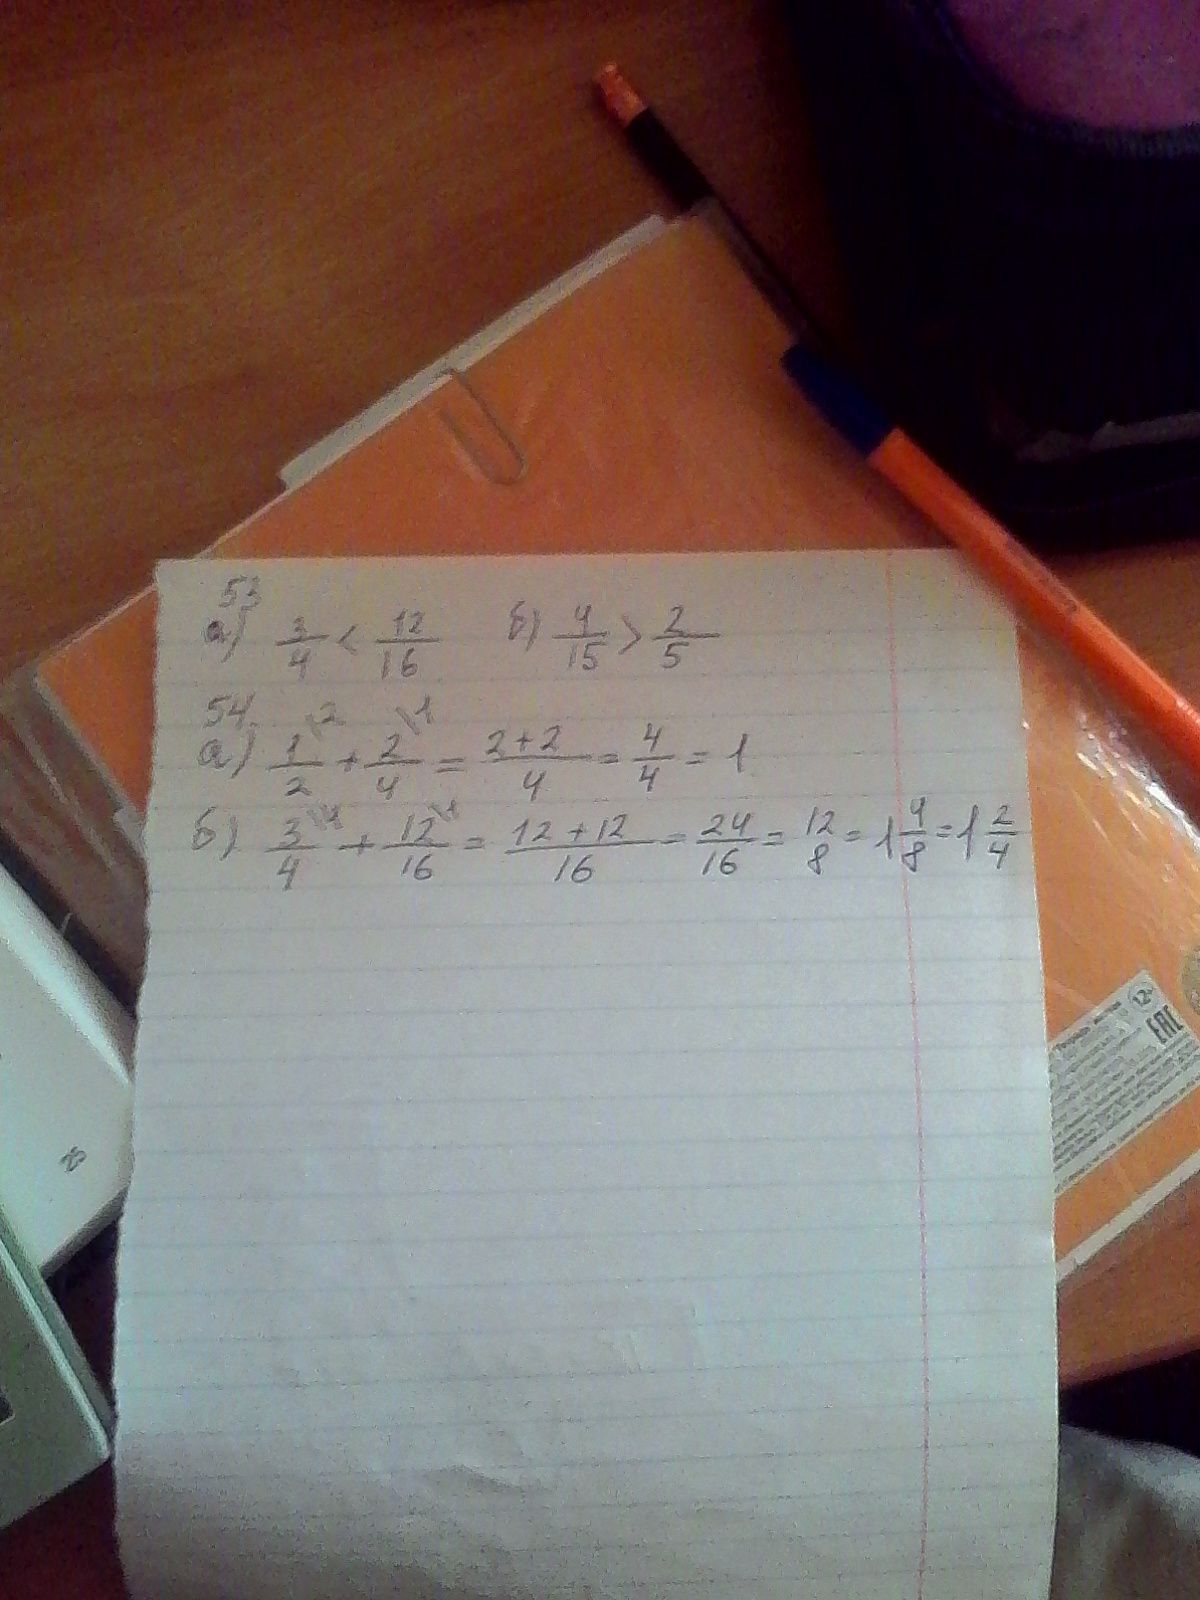 53
а) 3/4 < 12/16 б) 4/15 > 2/5
54.
а) 1/2 \2 + 2/4 \1 = 2+2/4 = 4/4 = 1
б) 3/4 \4 + 12/16 \1 = 12+12/16 = 24/16 = 12/8 = 1 4/8 = 1 2/4
12+
EAC
25